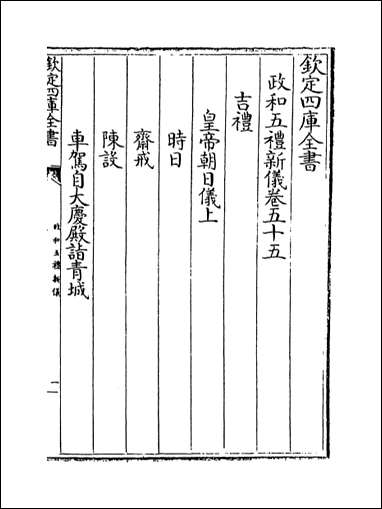 欽定四庫全書
政和五禮新儀卷五十五
吉禮
皇帝朝日儀上
時日
齋戒
陳設
車駕自大慶殿詣青城
欽定四庫全書
政和五禮新儀
一